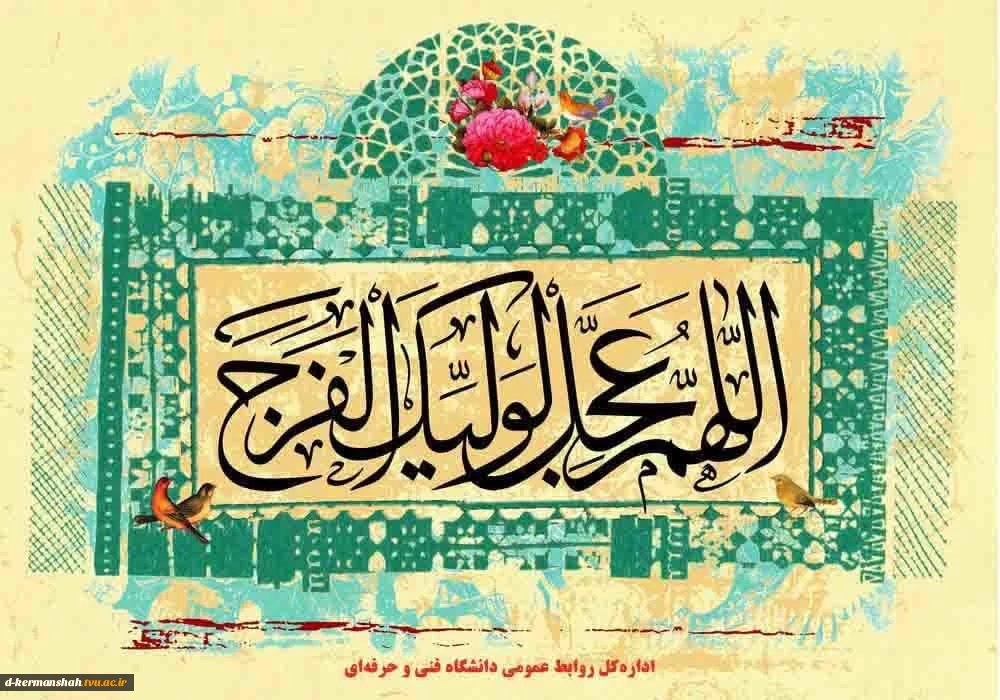 اللّهُمَّ عَجِّل لِوَلِیِّکَ الفَرَجَ
اداره‌کل روابط عمومی دانشگاه فنی و حرفه‌ای
d-kermanshah.tvu.ac.ir